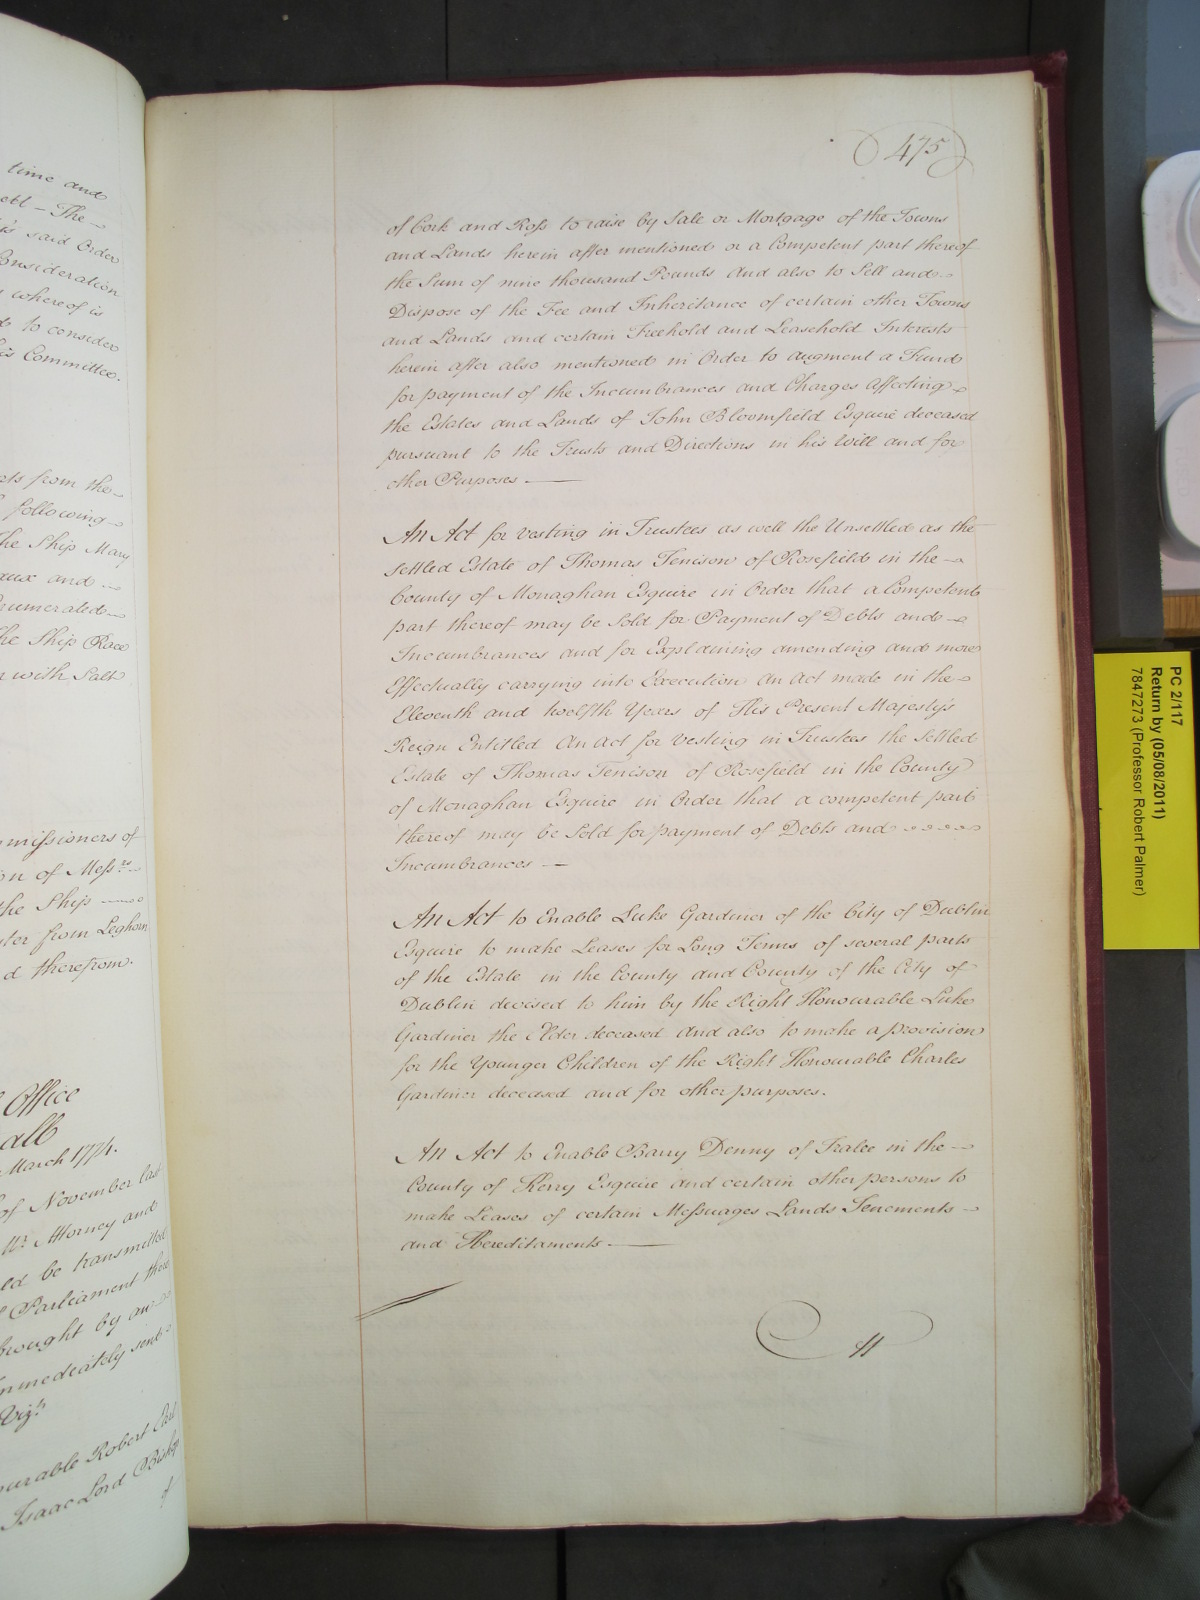 time and
The
said Order
Consideration
whereof is
to consider
Committee.
from the
following
the Ship Mary
and
Enumerated
the Ship
with Salt
missioners of
of Mess.rs
the Ship
from Leghorn
therefrom.
Office
March 1774.
of November last
Mr. Attorney and
be transmitted
Parliament there
brought by an
mmediately sent
Vizt.
ourable Robert
Isaac Lord Bishop
of
475
of Cork and Ross to raise by Sale or Mortgage of the Towns
and Lands herein after mentioned or a Competent part thereof
the Sum of nine thousand Pounds and also to Sell and
Dispose of the Fee and Inheritance of certain other Towns
and Lands and certain Freehold and Leasehold Interests
herein after also mentioned in Order to augment a Fund
for payment of the Incumbrances and Charges Affecting
the Estates and Lands of John Bloomfield Esquire deceased
pursuant to the Trusts and Directions in his Will and for
other Purposes.
An Act for vesting in Trustees as well the Unsettled as the
settled Estate of Thomas Tenison of Rosefield in the
County of Monaghan Esquire in Order that a Competent
part thereof may be Sold for Payment of Debts and
Incumbrances and for Explaining amending and more
Effectually carrying into Execution an Act made in the
Eleventh and twelfth Years of His Present Majesty's
Reign Entitled An Act for vesting in Trustees the Settled
Estate of Thomas Tenison of Rosefield in the County
of Monaghan Esquire in Order that a competent part
thereof may be Sold for payment of Debts and
Incumbrances
An Act to Enable Luke Gardiner of the City of Dublin
Esquire to make Leases for Long Terms of several parts
of the Estate in the County and County of the City of
Dublin devised to him by the Right Honourable Luke
Gardiner the Elder deceased and also to make a provision
for the Younger Children of the Right Honourable Charles
Gardiner deceased and for other purposes.
An Act to Enable Barry Denny of Tralee in the
County of Kerry Esquire and certain other persons to
make Leases of certain Messuages Lands Tenements
and Hereditaments.
PC 2/117
Return by (05/08/2011)
7847273 (Professor Robert Palmer)